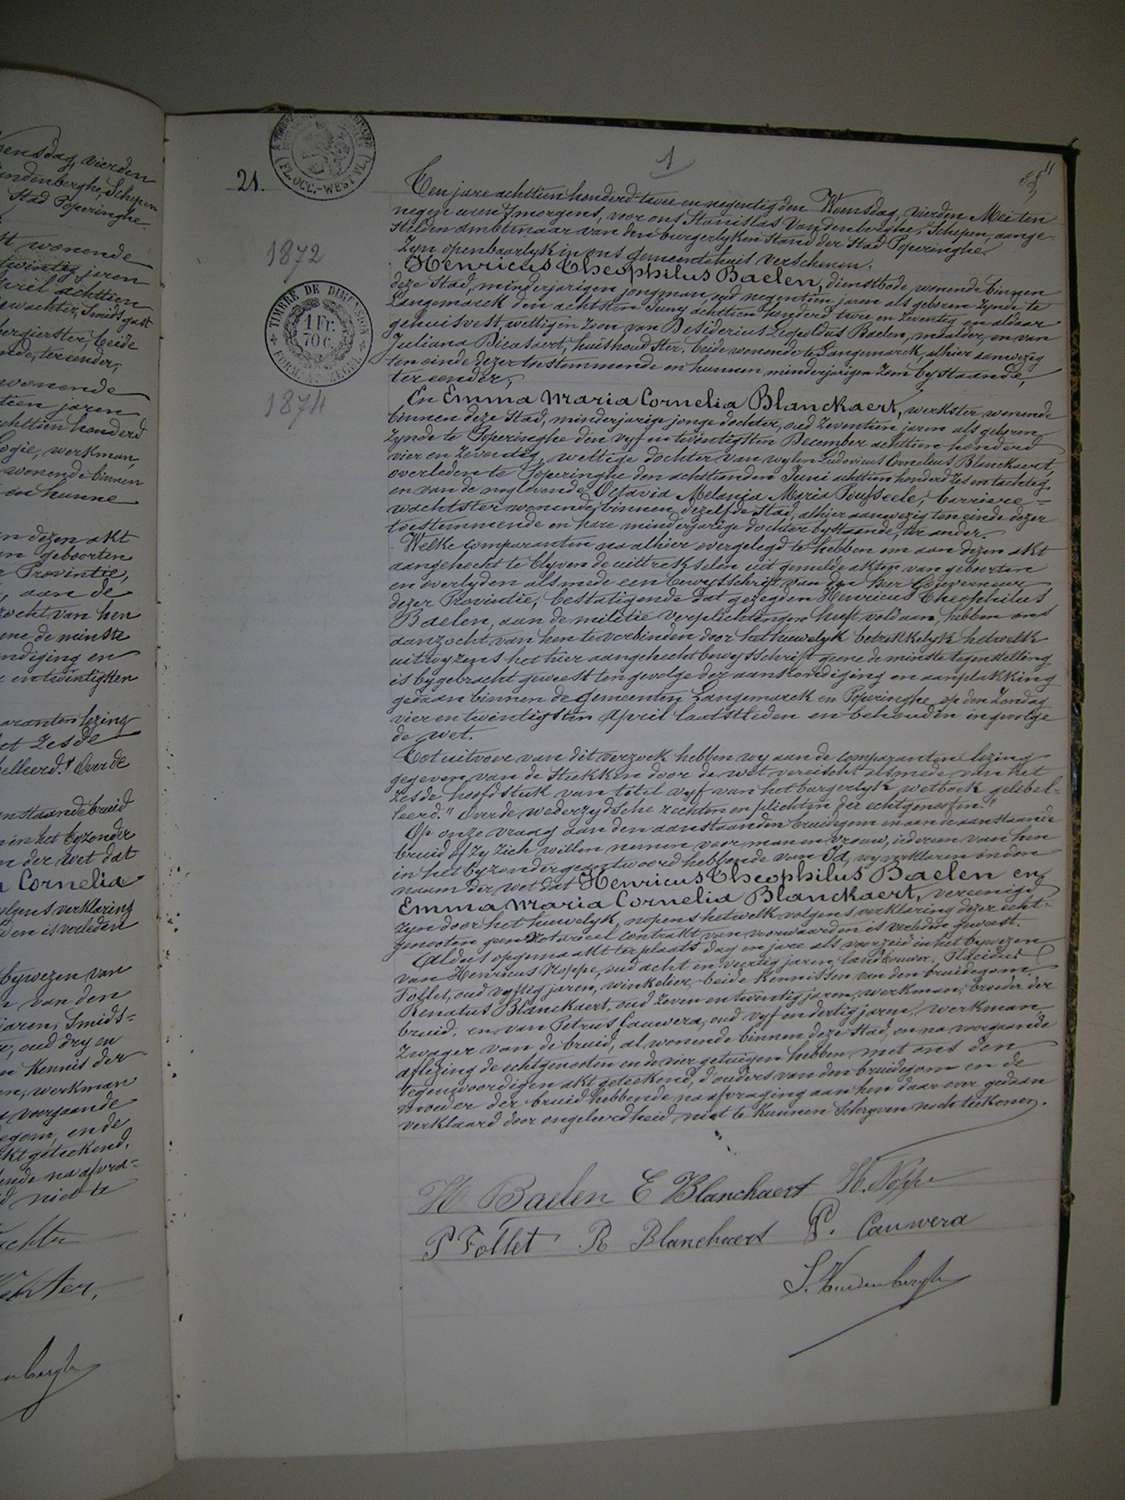 1
21.
PL. OCC.-WEST VL.
Ten jare achttien honderd twee en negentig den Woensdag, vierden Mei ten
negen uren 'smorgens, voor ons Stanislas Vandenberghe, Schepen, aange-
stelden ambtenaar van den burgerlyken stand der Stad Poperinghe
Zyn openbaarlyk in ons gemeentehuis verschenen.
1872
Henricus Theophilus Baelen, dienstbode, wonende binnen
deze Stad, minderjarigen jongman, oud negentien jaren als geboren zynde te
Langemarck den achtsten Juny achttien honderd twee en zeventig en aldaar
gehuisvest, wettigen zoon van Desiderius Leopoldus Baelen, maalder, en van
TIMBRE DE DIMENSION
1 Fr. 70 C.
Juliana Dicasiert, huishoudster, beide wonende te Langemarck, alhier aanwezig
ten einde dezer toestemmende en hunnen minderjarigen zoon bystaande,
ter eender,
1874
En Emma Maria Cornelia Blanckaert, werkster, wonende
binnen deze Stad, minderjarige jonge dochter, oud zeventien jaren als geboren
zynde te Poperinghe den vyf en twintigsten December achttien honderd
vier en zeventig, wettige dochter van wylen Ludovicus Cornelius Blanckaert,
overleden te Poperinghe den achttienden Juni achttien honderd zes en tachtig,
en van de nog levende Octavia Melania Maria Pouseele, barriere-
wachtster wonende binnen dezelfde Stad, alhier aanwezig ten einde dezer
toestemmende en hare minderjarige dochter bystaande, ter ander.
Welke comparanten na alhier overgelegd te hebben om aan dezen akt
aangehecht te blyven de uittreksels uit gemelde akten van geboorten
en overlyden alsmede een bewysschrift van den Heer Gouverneur
dezer Provintie, bestatigende dat gezegden Henricus Theophilus
Baelen, aan de militie verplichtingen heeft voldaan, hebben ons
aanzocht van hen te verbinden door het huwelyk betrekkelyk hetwelk
uitwyzens het hier aangehecht bewysschrift geene de minste tegenstelling
is bygebracht geweest ten gevolge der aankondiging en aanplakking
gedaan binnen de gemeenten Langemarck en Poperinghe op den Zondag
vier en twintigsten April laatstleden en behouden ingevolge
de wet.
Tot uitvoer van dit verzoek hebben wy aan de comparanten lezing
gegeven van de stukken door de wet vereischt alsmede van het
zesde hoofdstuk van titel vyf van het burgerlyk wetboek gelibel-
leerd: "Over de wederzydsche rechten en plichten der echtgenoten."
Op onze vraag aan den aanstaanden bruidegom en aan de aanstaande
bruid of zy zich willen nemen voor man en vrouw, iedereen van hen
in het byzonder geantwoord hebbende van Ja, wy verklaren in den
naam der wet dat Henricus Theophilus Baelen en
Emma Maria Cornelia Blanckaert, vereenigd
zyn door het huwelyk, nopens hetwelk volgens verklaring dezer echt-
genooten geen Notarieel contrakt van voorwaarden is verleden geweest.
Aldus opgemaakt ter plaats, dag en jare als voorzeid in het bywezen
van Henricus Noppe, oud acht en veertig jaren, landbouwer, Placidus
Follet, oud vyftig jaren, winkelier, beide Kennissen van den bruidegom
Renatus Blanckaert, oud zeven en twintig jaren, werkman, broeder der
bruid, en van Petrus Cauwera, oud vyf en dertig jaren, werkman,
Zwager van de bruid, al wonende binnen deze Stad, en na voorgaande
aflezing de echtgenooten en de vier getuigen hebben met ons den
tegenwoordigen akt geteekend, d'ouders van den bruidegom en de
moeder der bruid hebbende na afvraging aan hen daar over gedaan
verklaard door ongeleerdheid niet te kunnen schryven noch teekenen.
H Baelen E Blanckaert H. Noppe
P Follet R Blanckaert P. Cauwera
S. Vandenberghe